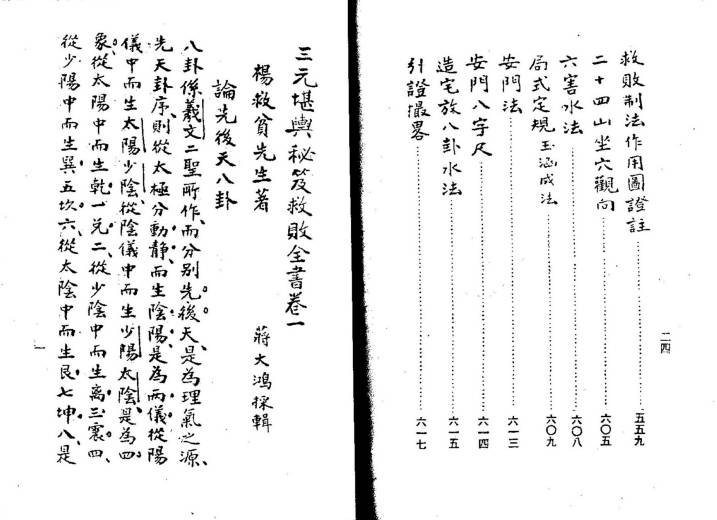 救敗制法作用圖證註……五五九
二十四山坐穴觀向……六〇五
六害水法……六〇八
局式定規玉涵成法……六〇九
安門法……六一三
安門八字尺……六一四
造宅放八卦水法……六一五
引證撮畧……六一七
二四
三元堪輿秘笈救敗全書卷一
楊救貧先生著 蔣大鴻採輯
論先後天八卦
八卦係羲文二聖所作、而分别先、後天、是為理氣之源、
先天卦序、則從太極分動静、而生陰陽、是為兩儀、從陽
儀中而生太陽、少陰、從陰儀中而生少陽、太陰、是為四
象、從太陽中而生乾一、兑二、從少陰中而生离三、震四、
從少陽中而生巽五、坎六、從太陰中而生艮七、坤八、是
一